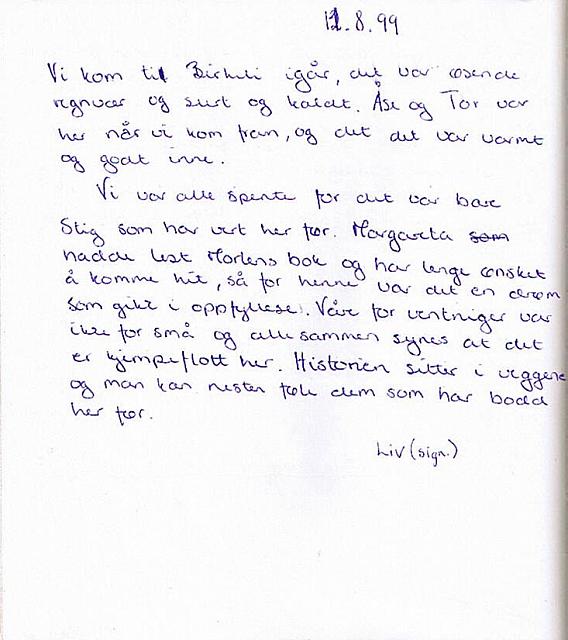 12.8.99
Vi kom til Birkeli igår, det var øsende
regnvær og surt og kaldt. Åse og Tor var
her når vi kom fram, og det det var varmt
og godt inne.
Vi var alle spente for det var bare
Stig som har vært her før. Margareta som
hadde lest Mortens bok og har lenge ønsket
å komme hit, så for henne var det en drøm
som gikk i oppfyllese. Våre for ventniger var
ikke for små og alle sammen synes at det
er kjempeflott her. Historien sitter i veggene
og man kan nesten føle dem som har bodd
her før.
Liv (sign.)